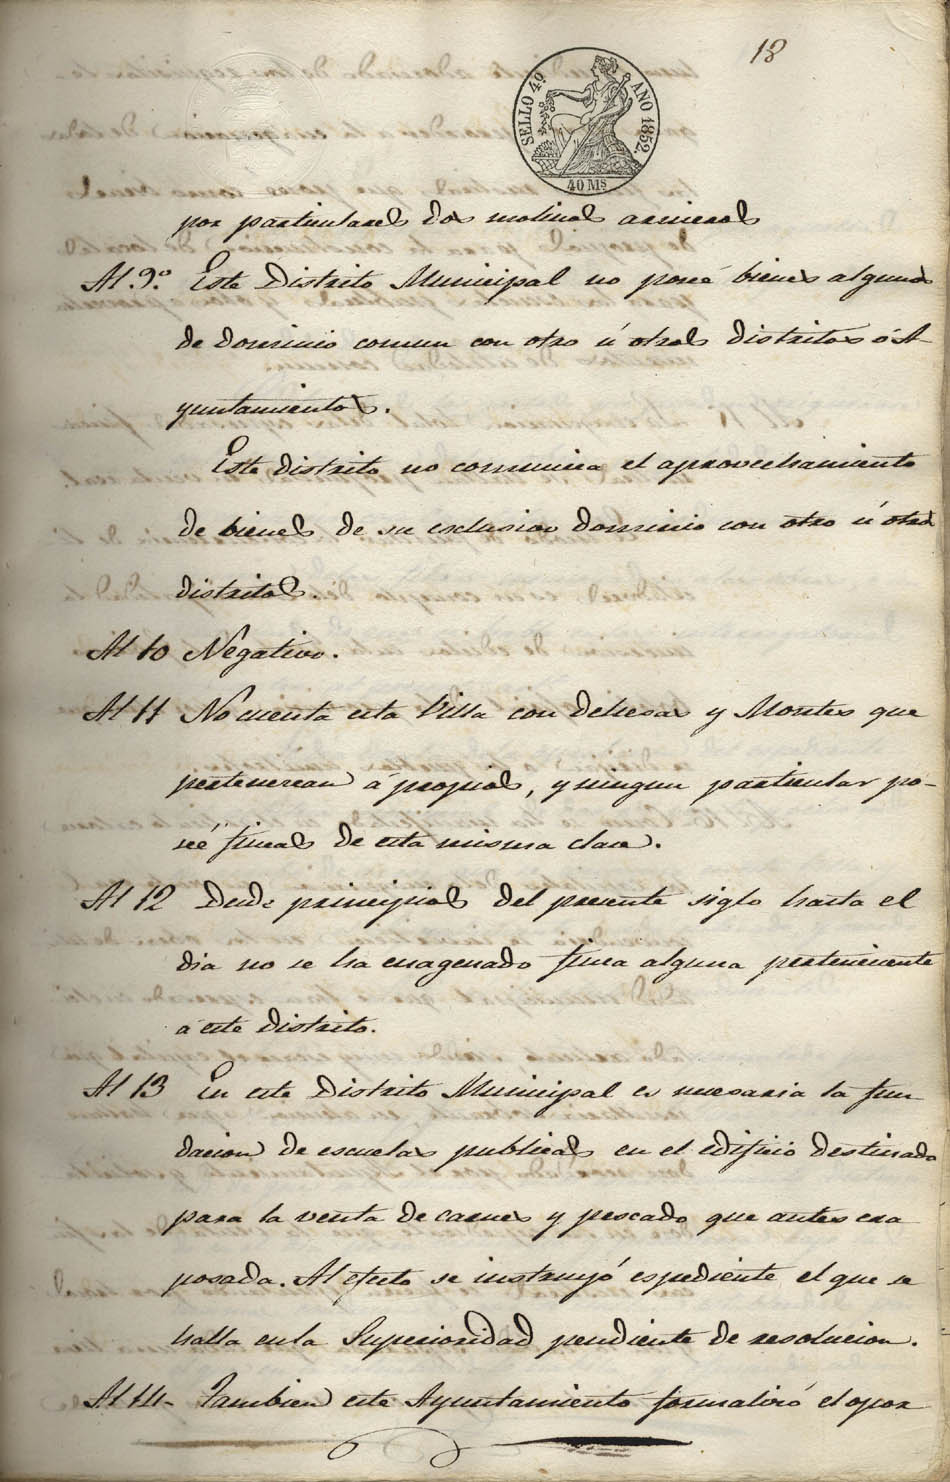 18
SELLO 4º. AÑO 1852.
40 Ms
por particulares dos molinos arineros
Al 9º. Este Distrito Municipal no posee bienes algunos
de dominio comun con otro ú otros distritos ó A-
yuntamientos.
Este distrito no comunica el aprovechamiento
de bienes de su esclusivo dominio con otro ú otros
distritos.
Al 10 Negativo.
Al 11 No cuenta esta Villa con dehesas y Montes que
pertenezcan á propios, y ningun particular po-
seé fincas de esta misma clase.
Al 12 Desde principios del presente siglo hasta el
dia no se ha enagenado finca alguna perteneciente
á este distrito.
Al 13 En este Distrito Municipal es necesaria la fun
dacion de escuelas publicas en el edificio destinado
para la venta de carnes y pescado que antes era
posada. Al efecto se instruyó espediente el que se
halla en la Superioridad pendiente de resolucion.
Al 14- Tambien este Ayuntamiento formalizó el opor